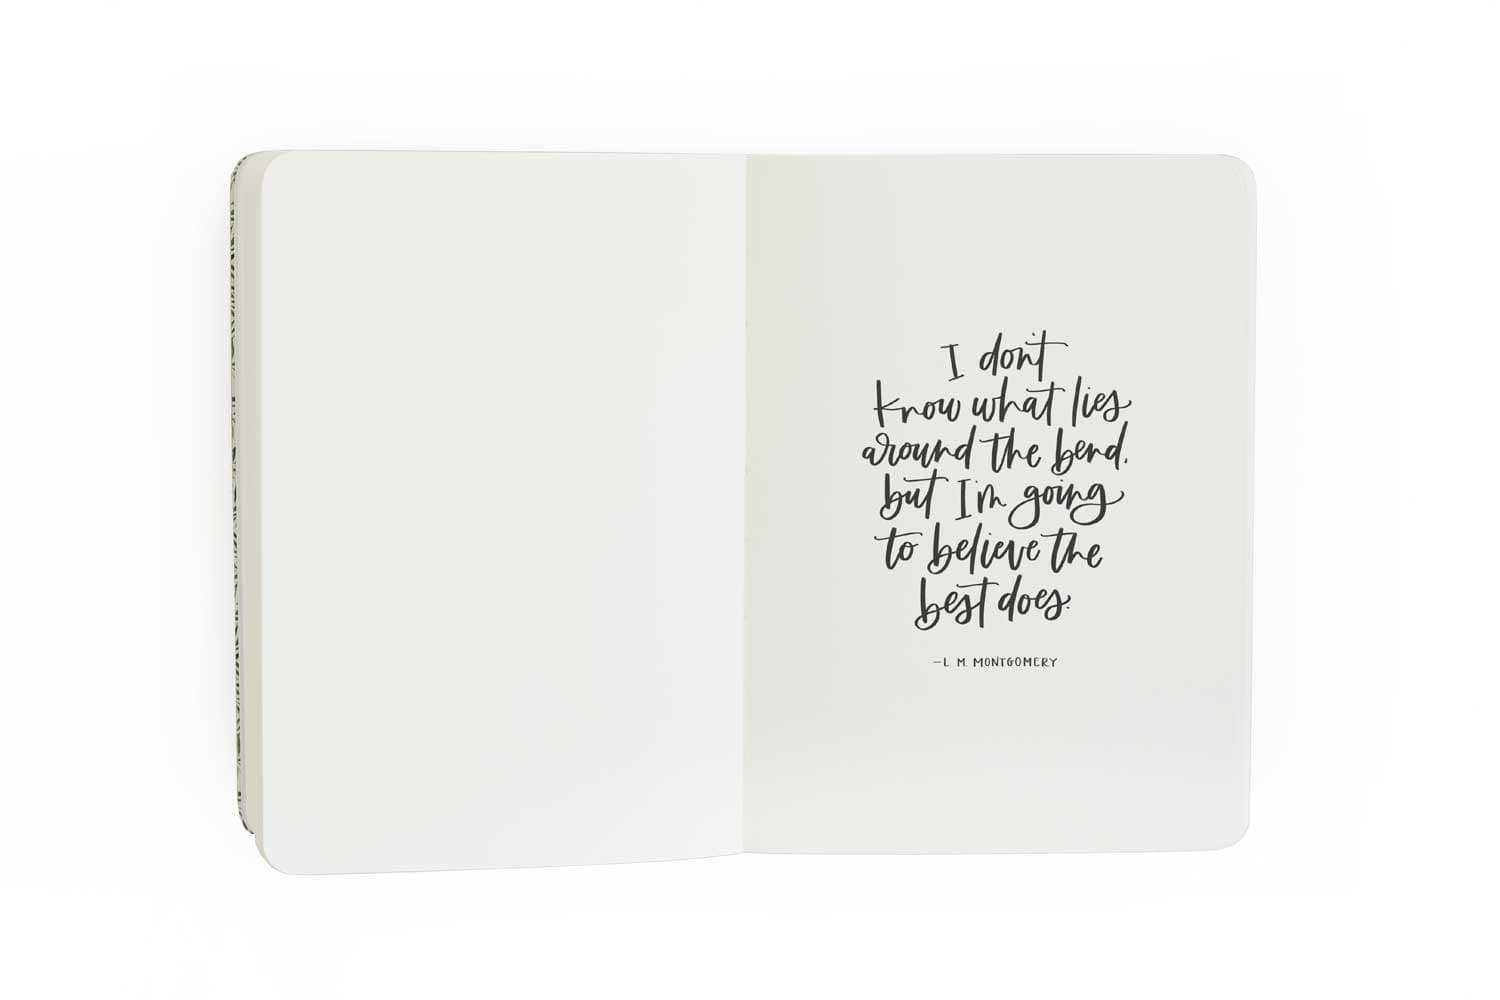 I don't
know what lies
around the bend,
but I'm going
to believe the
best does.
—L. M. MONTGOMERY